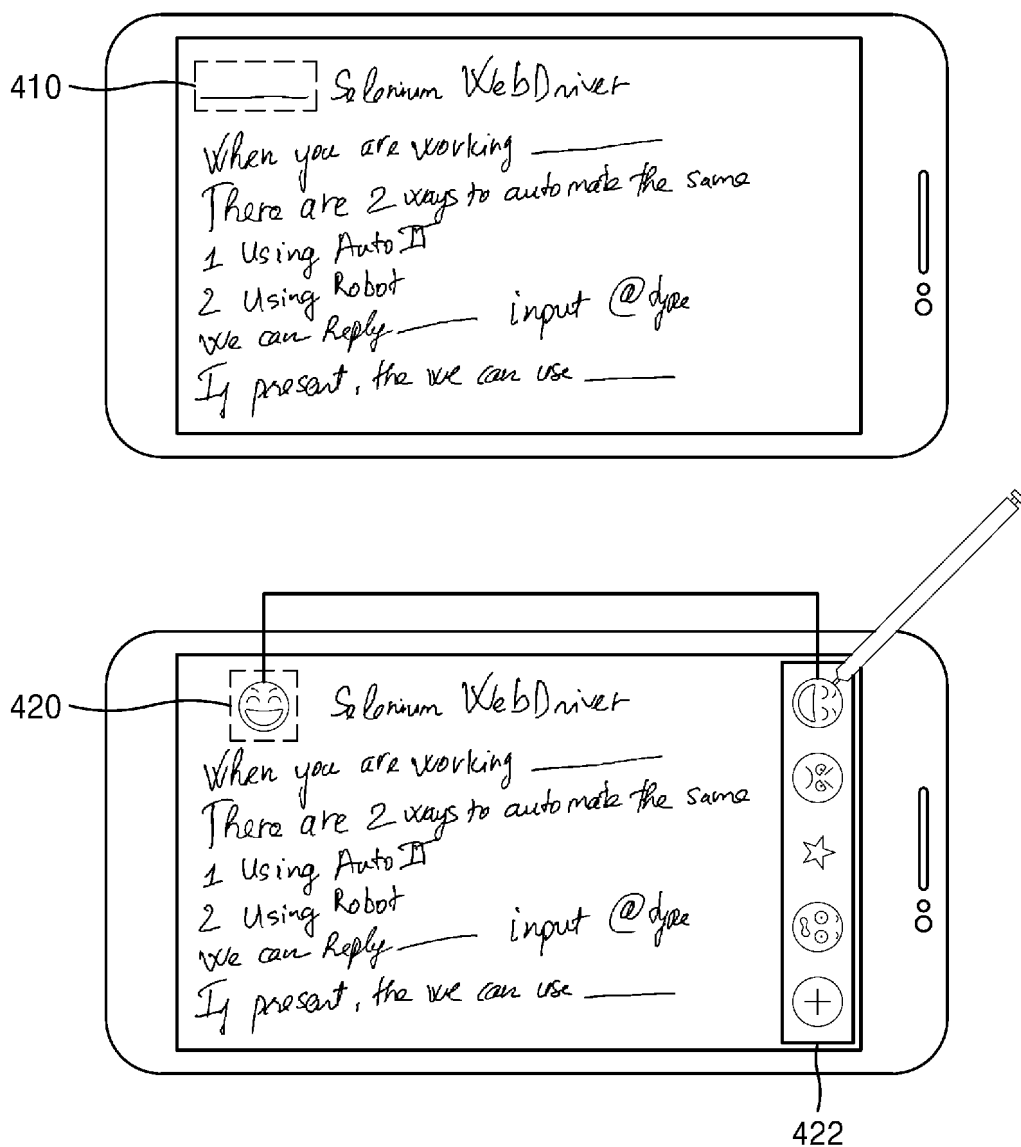 410
Selenium WebDriver
When you are working
There are 2 ways to automate the same
1 Using AutoIT
2 Using Robot
We can Reply input @type
If present, the we can use
420
Selenium WebDriver
When you are working
There are 2 ways to automate the same
1 Using AutoIT
2 Using Robot
We can Reply input @type
If present, the we can use
422